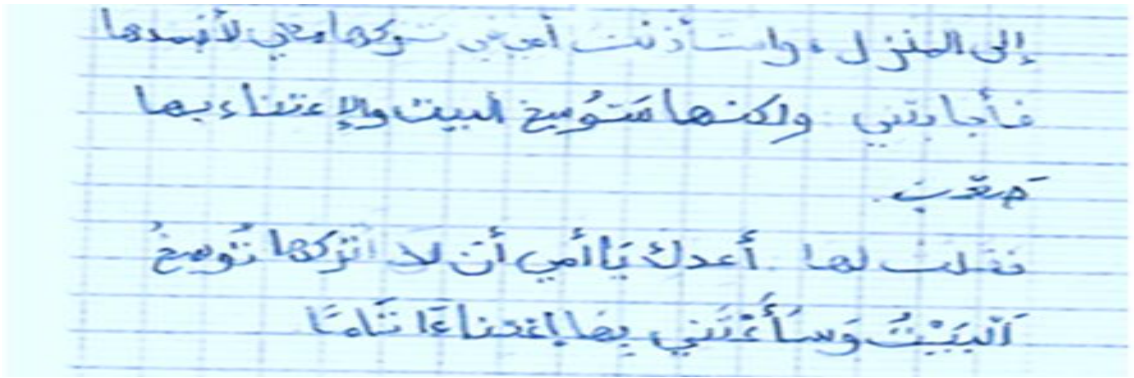 إلى المنزل، واستأذنت أمي في تركها معي لأنهمدها
فأجابتني: ولكنها سَتوُسِخ البيت والإعتناء بها
صعْبٌ.
فقلت لها: أعدك يَا أمي أن لا أتركها تُوسِخُ
اَلبَيْتُ وَسَأَعْتَني بِهَا إعتناءًا تَامًا